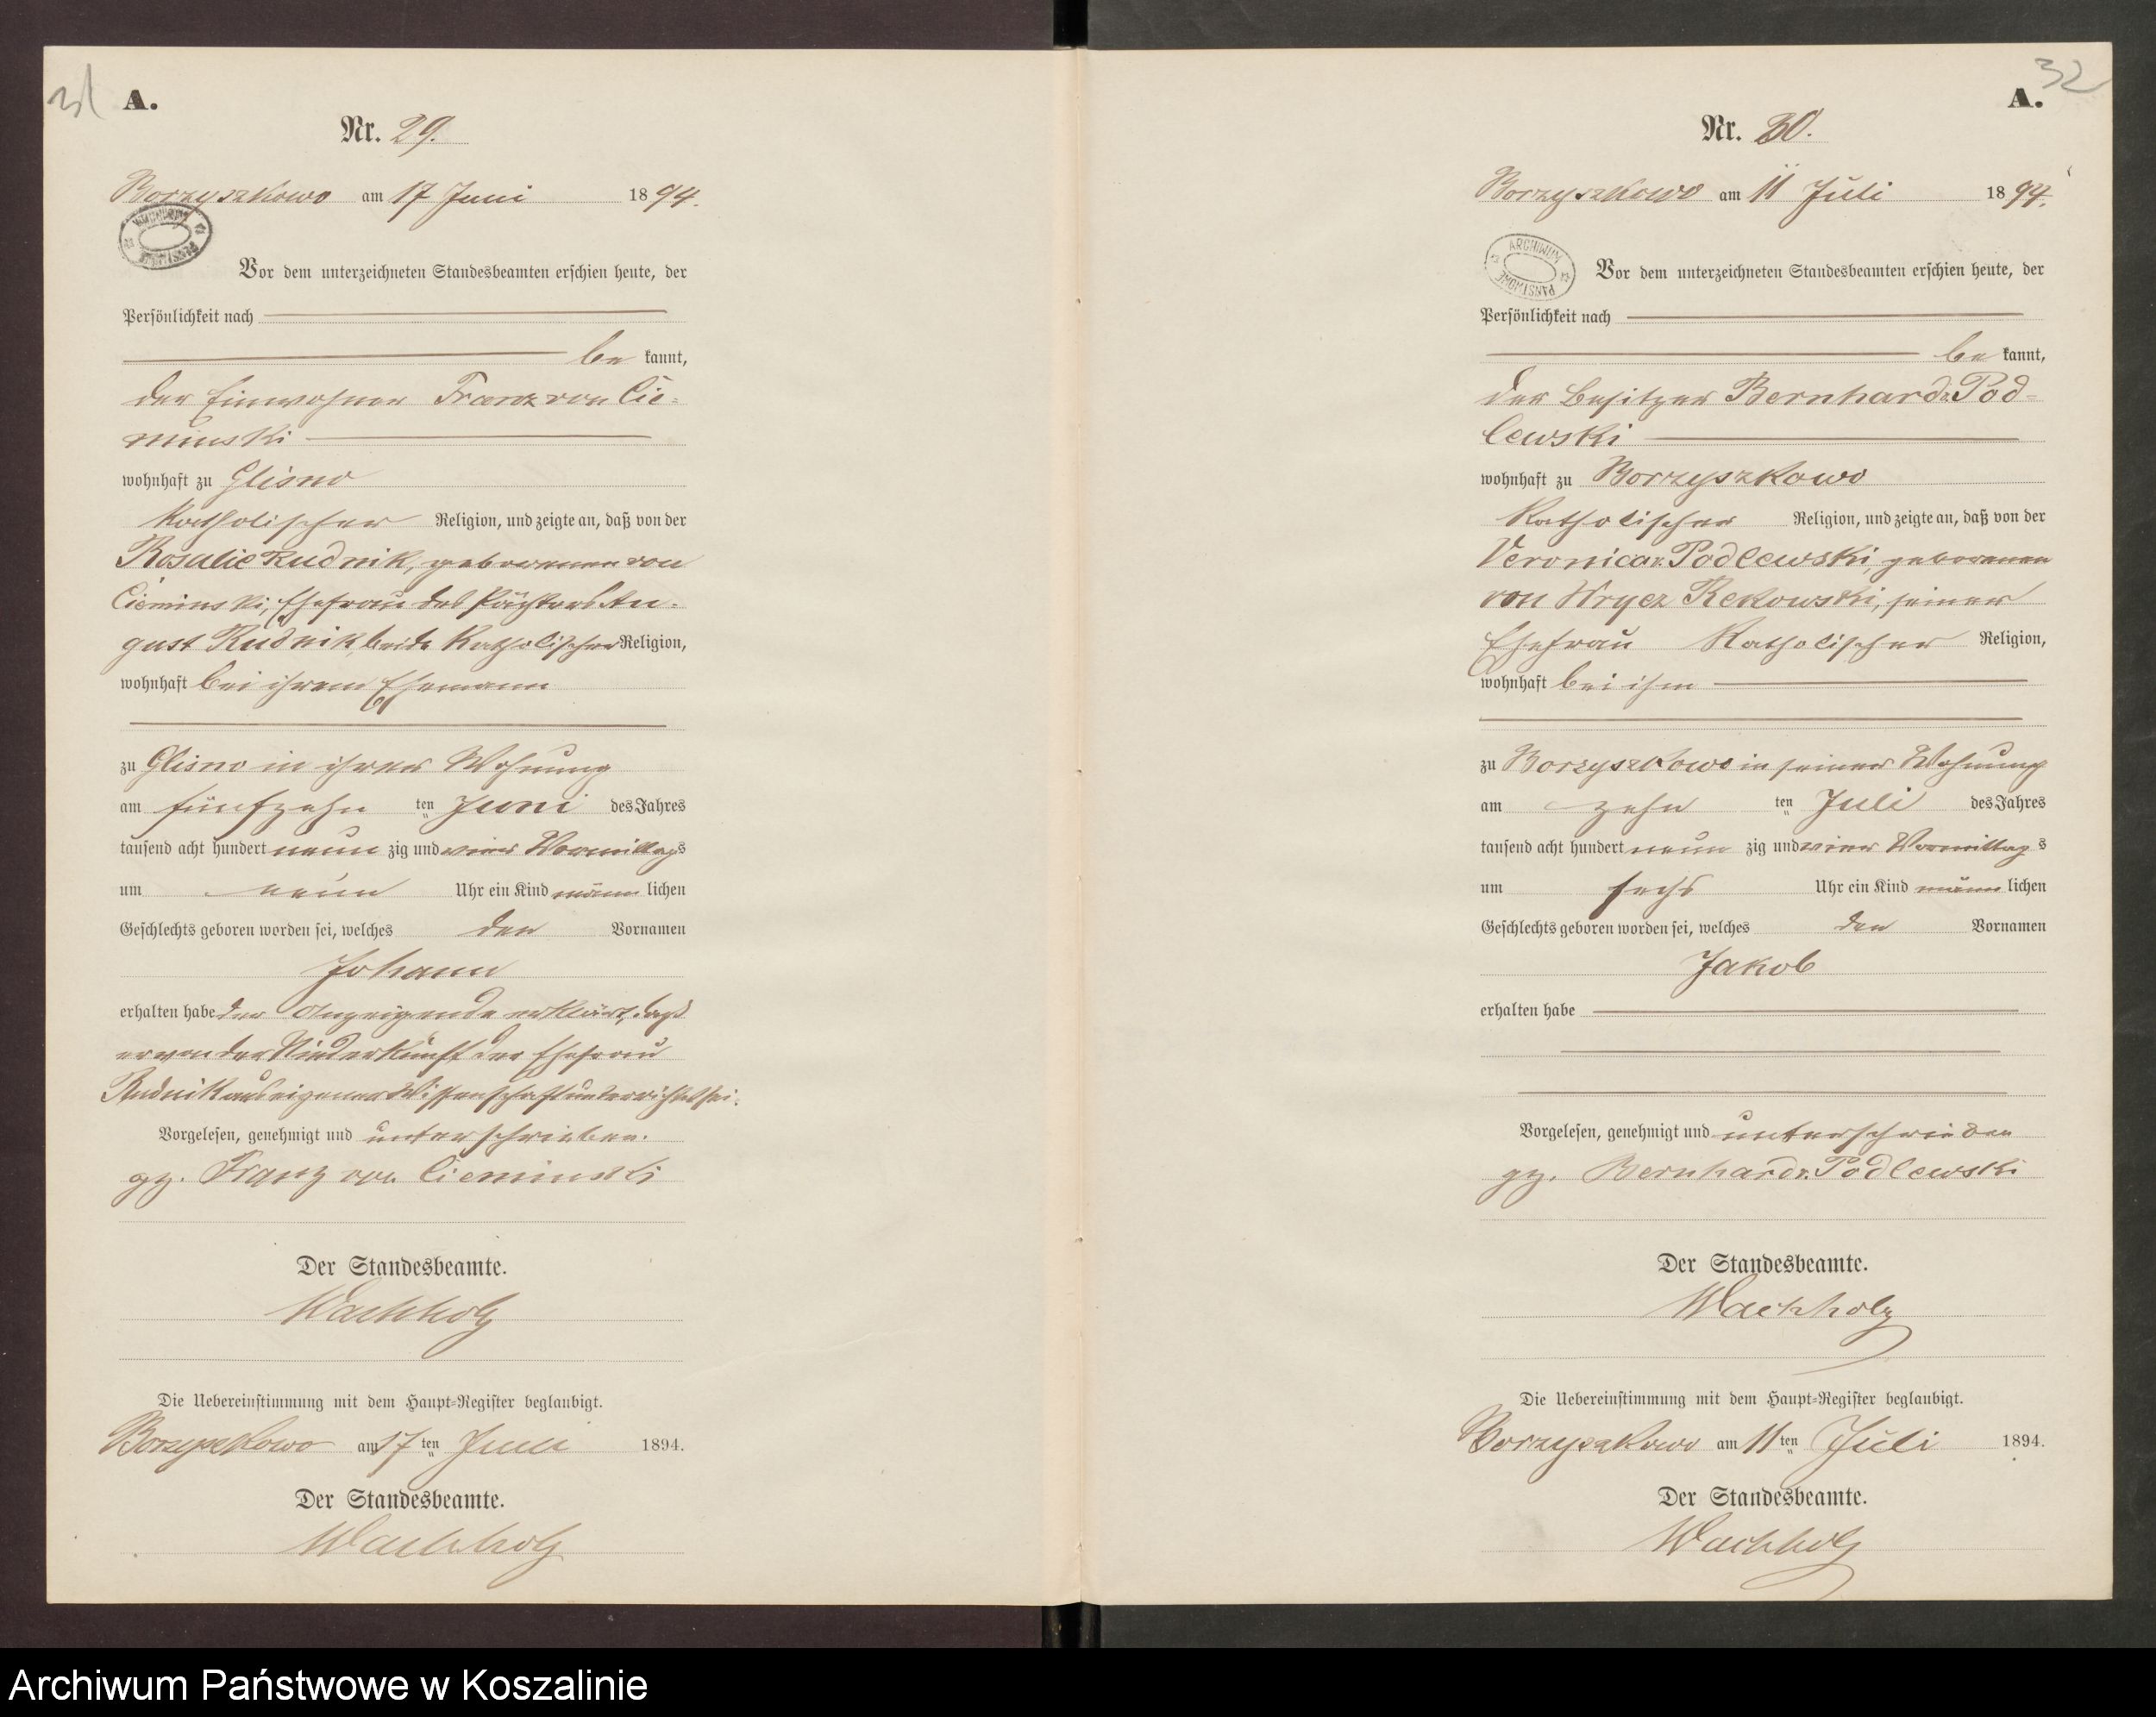 31
A.
Nr. 29.
Borzyszkowo am 17 Juni 1894.
Vor dem unterzeichneten Standesbeamten erschien heute, der
Persönlichkeit nach
be kannt,
der Einwohner Franz von Cie-
minski
wohnhaft zu Glisno
katholischer Religion, und zeigte an, daß von der
Rosalie Rudnik, geborenen von
Cieminski, Ehefrau des Pächters Au-
gust Rudnik, beide katholischer Religion,
wohnhaft bei ihrem Ehemann
zu Glisno in ihrer Wohnung
am fünfzehn ten Juni des Jahres
tausend acht hundert neun zig und vier Vormittags
um neun Uhr ein Kind männ lichen
Geschlechts geboren worden sei, welches den Vornamen
Johann
erhalten habe der Anzeigende erklärt, daß
er von der Niederkunft der Ehefrau
Rudnik aus eigener Wissenschaft unterrichtet sei.
Vorgelesen, genehmigt und unterschrieben.
gz. Franz von Cieminski
Der Standesbeamte.
Wachholz
Die Uebereinstimmung mit dem Haupt-Register beglaubigt.
Borzyszkowo am 17 ten Juni 1894.
Der Standesbeamte.
Wachholz
32
A.
Nr. 30.
Borzyszkowo am 11 Juli 1894.
ARCHIWUM PAŃSTWOWE
Vor dem unterzeichneten Standesbeamten erschien heute, der
Persönlichkeit nach
be kannt,
der Besitzer Bernhard v. Pod-
lewski
wohnhaft zu Borzyszkowo
katholischer Religion, und zeigte an, daß von der
Veronica v. Podlewski, geborenen
von Wrycz Rekowski, seiner
Ehefrau katholischer Religion,
wohnhaft bei ihm
zu Borzyszkowo in seiner Wohnung
am zehn ten Juli des Jahres
tausend acht hundert neun zig und vier Vormittag s
um sechs Uhr ein Kind männ lichen
Geschlechts geboren worden sei, welches den Vornamen
Jakob
erhalten habe
Vorgelesen, genehmigt und unterschrieben
gz. Bernhard v. Podlewski
Der Standesbeamte.
Wachholz
Die Uebereinstimmung mit dem Haupt-Register beglaubigt.
Borzyszkowo am 11 ten Juli 1894.
Der Standesbeamte.
Wachholz
Archiwum Państwowe w Koszalinie